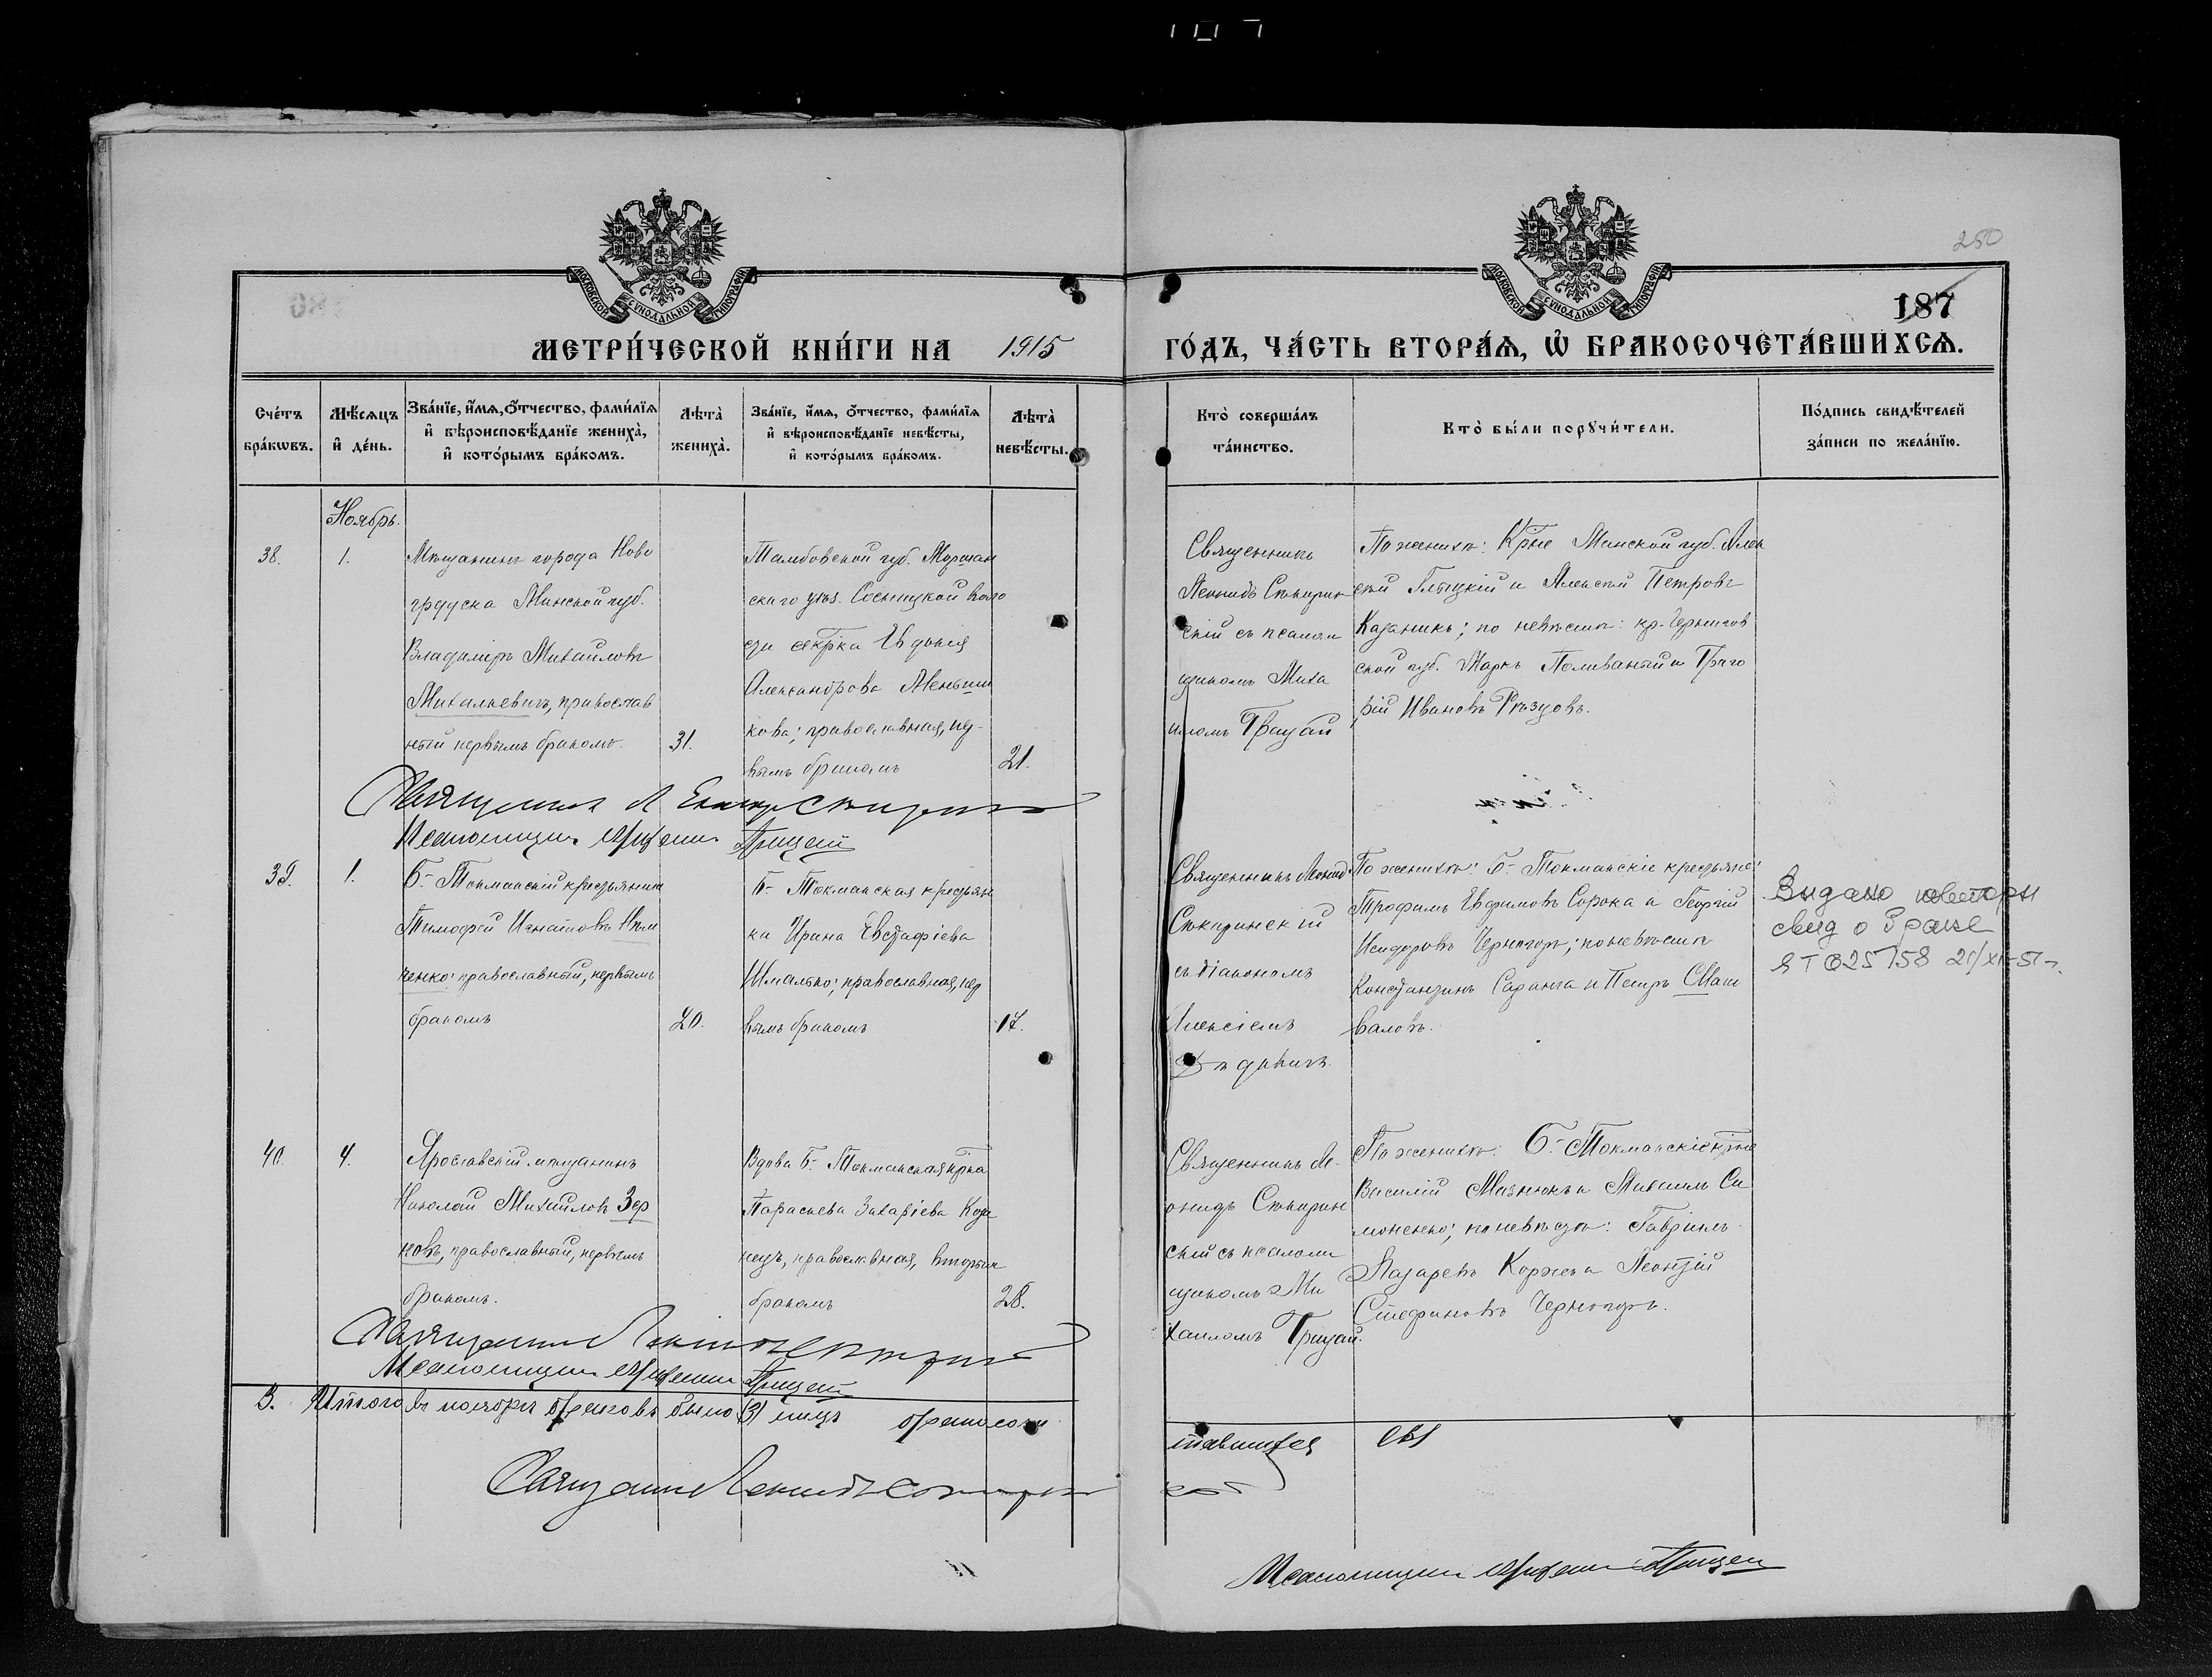 250
187
МОСКОВСКОЙ СѴНОДАЛЬНОЙ ТИПОГРАФІИ
МОСКОВСКОЙ СѴНОДАЛЬНОЙ ТИПОГРАФІИ
МЕТРИ́ЧЕСКОЙ КНИ́ГИ НА 1915 ГО́ДЪ, ЧА́СТЬ ВТОРА́Ѧ, Ѽ БРАКОСОЧЕТА́ВШИХСѦ.
Сче́тъ
бра́кѡвъ.
Мѣ́сѧцъ
и҆ де́нь.
Зва́нїе, и҆́мѧ, ѻ҆́тчество, фами́лїѧ
и҆ вѣроисповѣ́данїе жениха̀,
и҆ кото́рымъ бра́комъ.
Лѣта̀
жениха̀.
Зва́нїе, и҆́мѧ, ѻ҆́тчество, фами́лїѧ
и҆ вѣроисповѣ́данїе невѣ́сты,
и҆ кото́рымъ бра́комъ.
Лѣта̀
невѣ́сты.
Кто̀ соверша́лъ
та́инство.
Кто̀ бы́ли порꙋчи́тели.
По́дпись свидѣ́телей
за́писи по жела́нїю.
Ноябрь.
38.
1.
Мѣщанинъ города Ново
грудска Минской губ.
Владиміръ Михайловъ
Михалкевичъ, православ
ный первымъ бракомъ.
31.
Тамбовской губ. Моршан
скаго уѣз. Сосницкой воло
сти Евдокія
Александрова Меньши
кова; православная, пер
вымъ бракомъ
21.
Священникъ
Леонидъ Сѣкирин
скій съ псалом
щикомъ Миха
иломъ Грицай
По женихѣ: Крне Минской губ. Алек
сѣй Глыцкій и Алексѣй Петровъ
Казаникъ; по невѣстѣ: кр. Чернигов
ской губ. Маркъ Поливаный и Григо
рій Ивановъ Рѣзцовъ.
Священникъ
Псаломщикъ Михаилъ Грицай
39.
1.
Б.-Токмакскій крестьянинъ
Тимофей Игнатовъ Нѣм
ченко; православный, первымъ
бракомъ
20.
Б.- Токмакская крестьян
ка Ирина Евстафіева
Шмалько; православная, пер
вымъ бракомъ
17.
Священникъ Леонид
Сѣкиринскій
съ діакономъ
Алексіемъ
По женихѣ: Б.- Токмакскіе крестьяне:
Трофимъ Евфимовъ Сорока и Георгій
Исидоровъ Черногоръ; по невѣстѣ
Константинъ Саранча и Петръ Шаш
валовъ.
Выдано повторн
свид о браке
ЯТ 025758 21/XI-51 г.
40.
4.
Ярославскій мѣщанинъ
Николай Михайловъ Зер
новъ, православный, первымъ
бракомъ.
Вдова Б.- Токмакская крка
Параскева Захаріева Кори
нецъ, православная, вторымъ
бракомъ
28.
Священникъ Ле-
онидъ Сѣкирин
скій съ псалом
щикомъ Ми
хаиломъ Грицай.
По женихѣ: Б.- Токмакскіе крне
Василій Мазнюкъ и Михаилъ Си
моненко; по невѣстѣ: Гавріилъ
Лазаревъ Коржевъ и Леонтій
Стефановъ Черногоръ.
Священникъ
Псаломщикъ Михаилъ Грицай
3. Итого въ ноябрѣ браковъ было (3) лицъ бракосоче
тавшихся
Священникъ Леонидъ Сѣкиринскій
Псаломщикъ Михаилъ Грицай